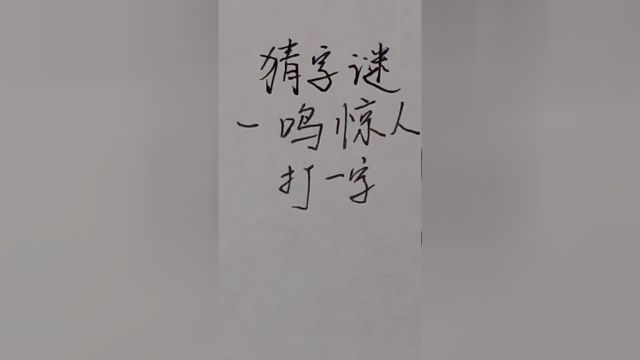 猜字谜
一鸣惊人
打一字